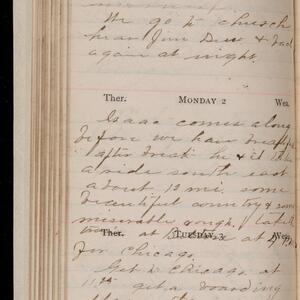 We go to church
hear Jim Dew &
again at night.
Ther. MONDAY 2 Wea.
Isaac comes along
before we have breakfast
after brekt he & I take
a ride south east
about 12 mi some
beautiful country & some
miserable rough. take
Ther. TUESDAY 3 Wea.
train at
for Chicago.
Get to Chicago at
11 25 get a boarding